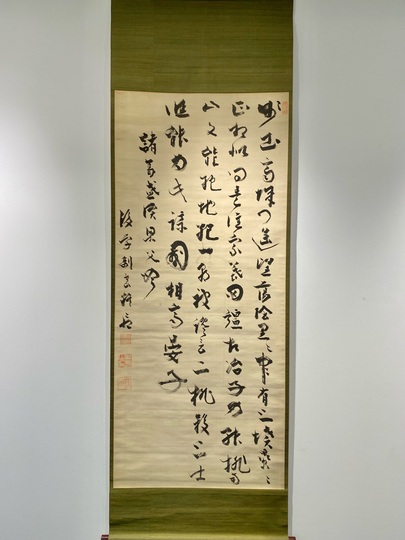 步出齊城門遙望蕩陰里〻中有三墳纍〻
正相似問是誰家冢田疆古冶子力能排南
山文能絕地紀一朝被讒言二桃殺三士
誰能為此謀國相齊晏子
諸葛武侯梁父吟